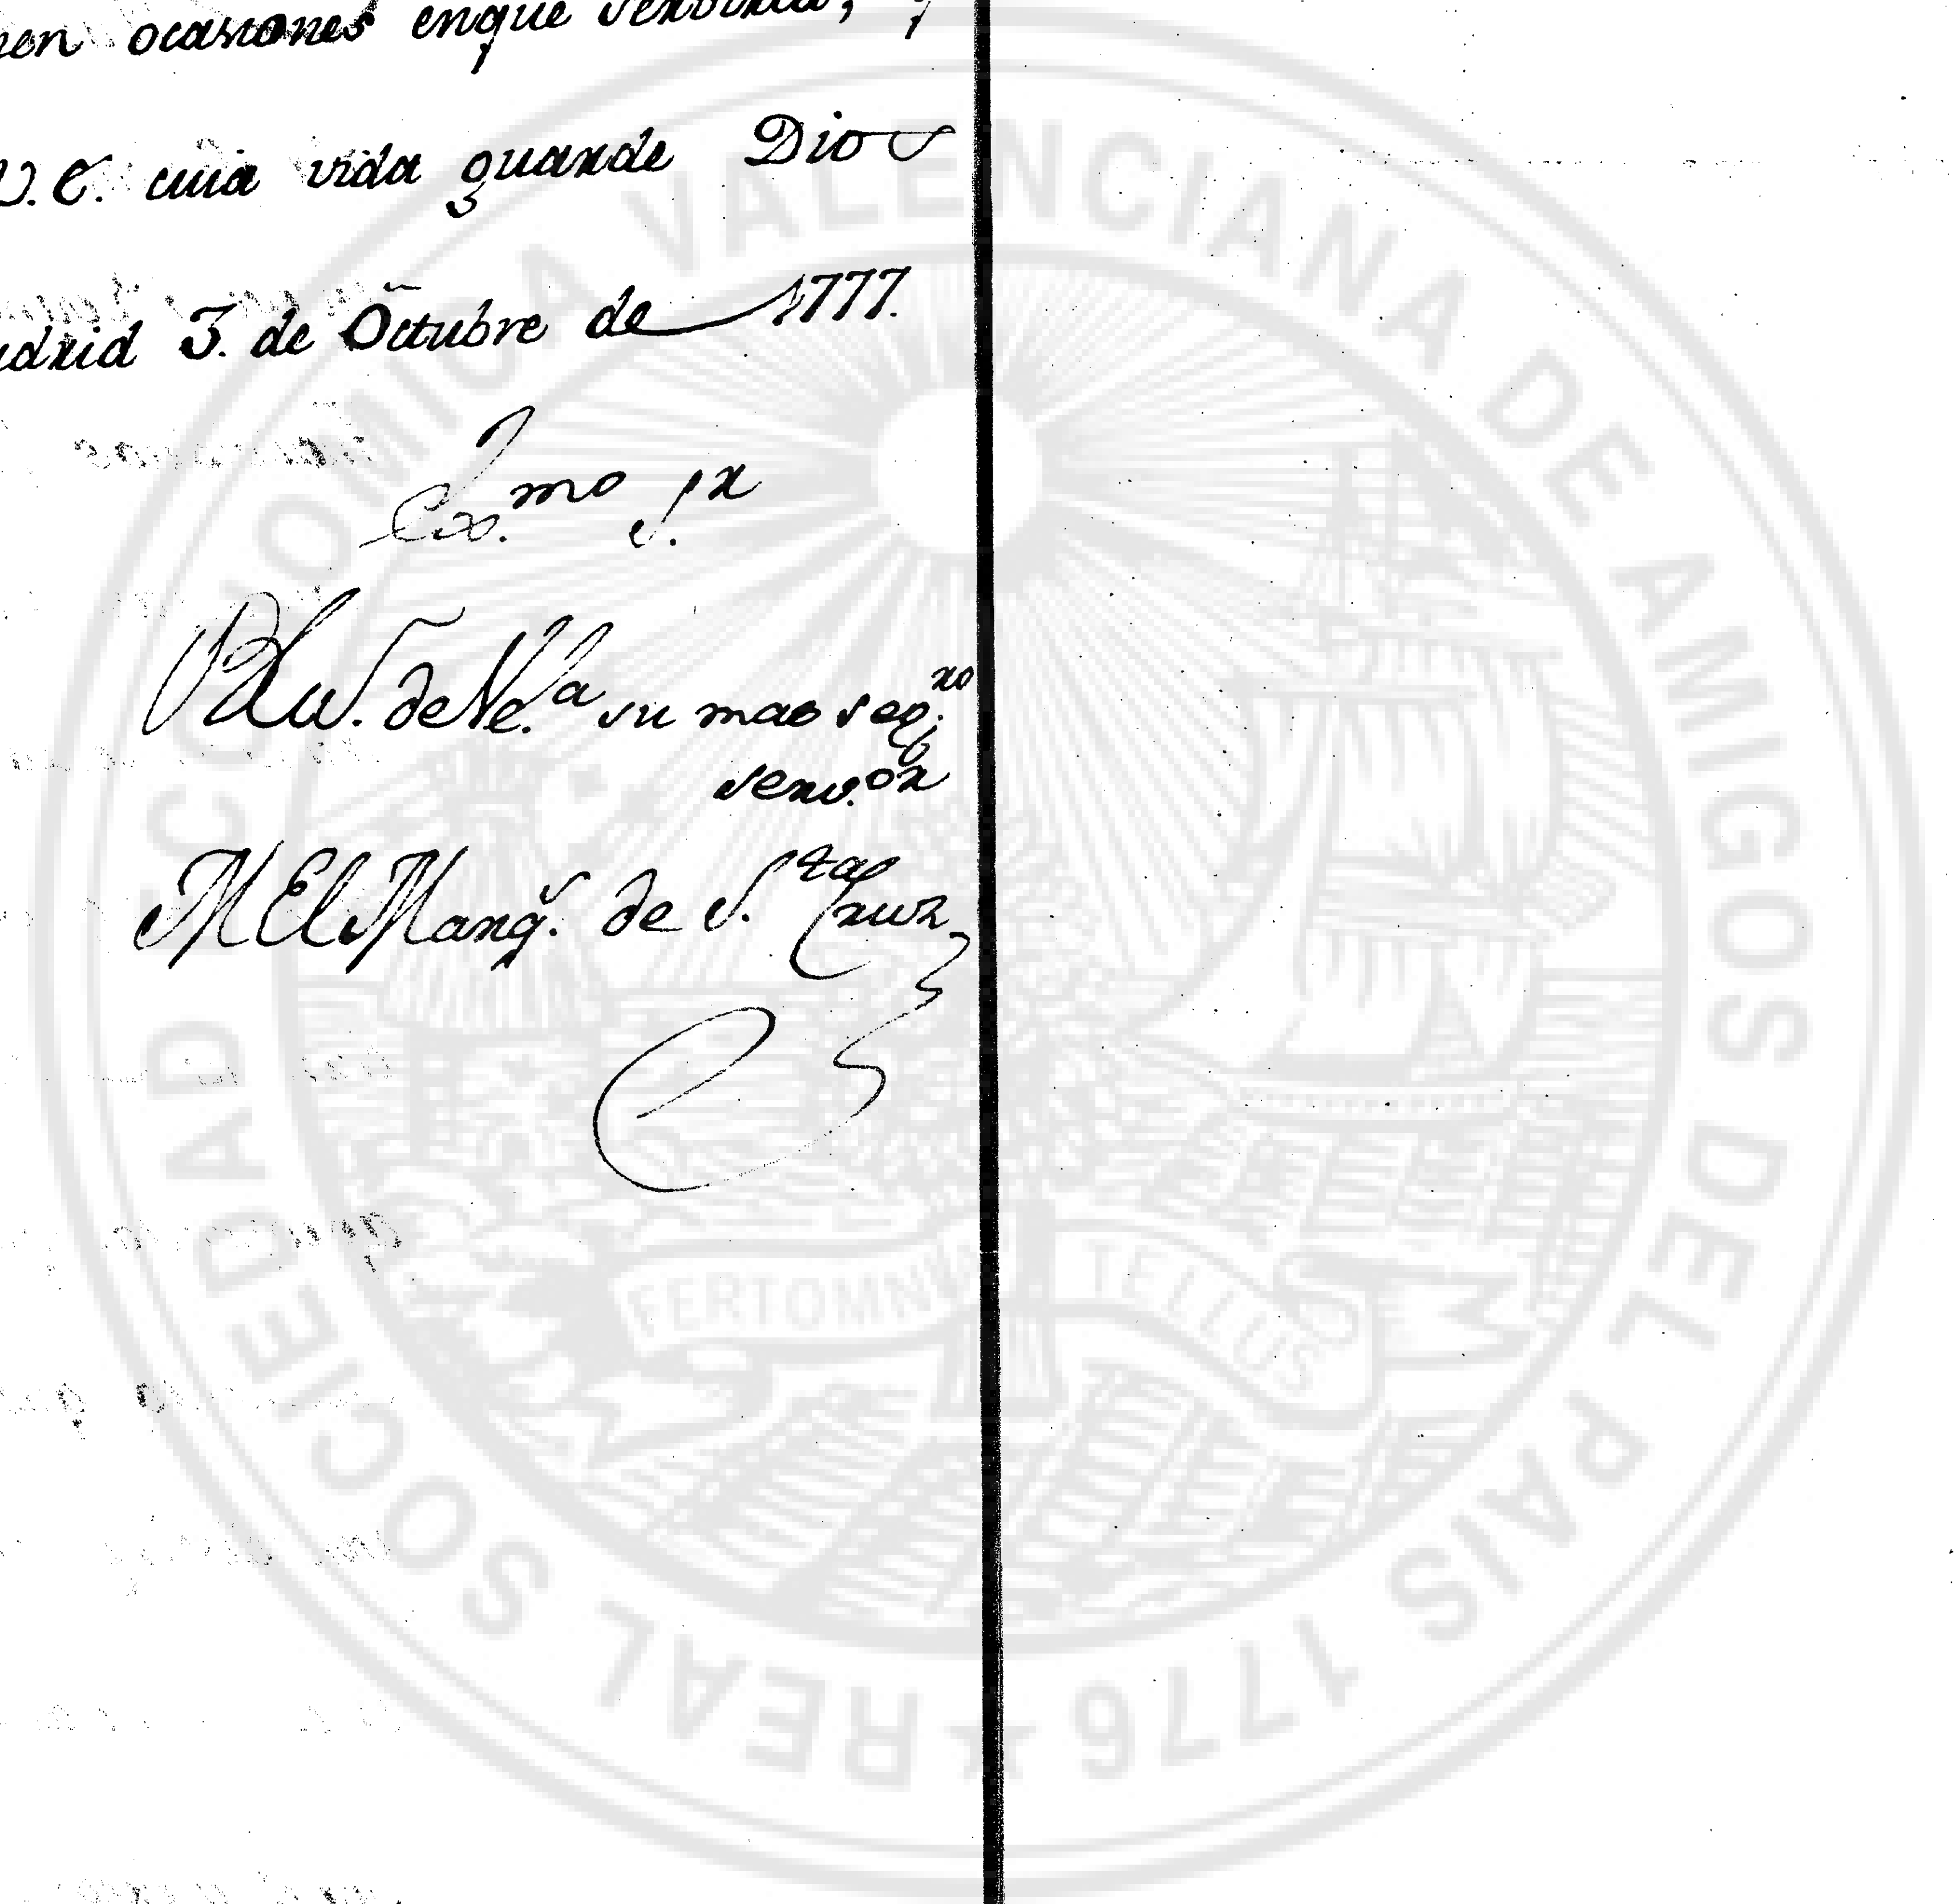 ocasiones enque
V.E. cuia vida guarde Dios
3. de Octubre de 1777.
Ex.mo S.r
de V.E.a su mas seg.ro
serv.or
El Marq.s de S.ta Cruz
REAL SOCIEDAD ECONOMICA VALENCIANA DE AMIGOS DEL PAIS 1776
FERT OMNIA TELLUS